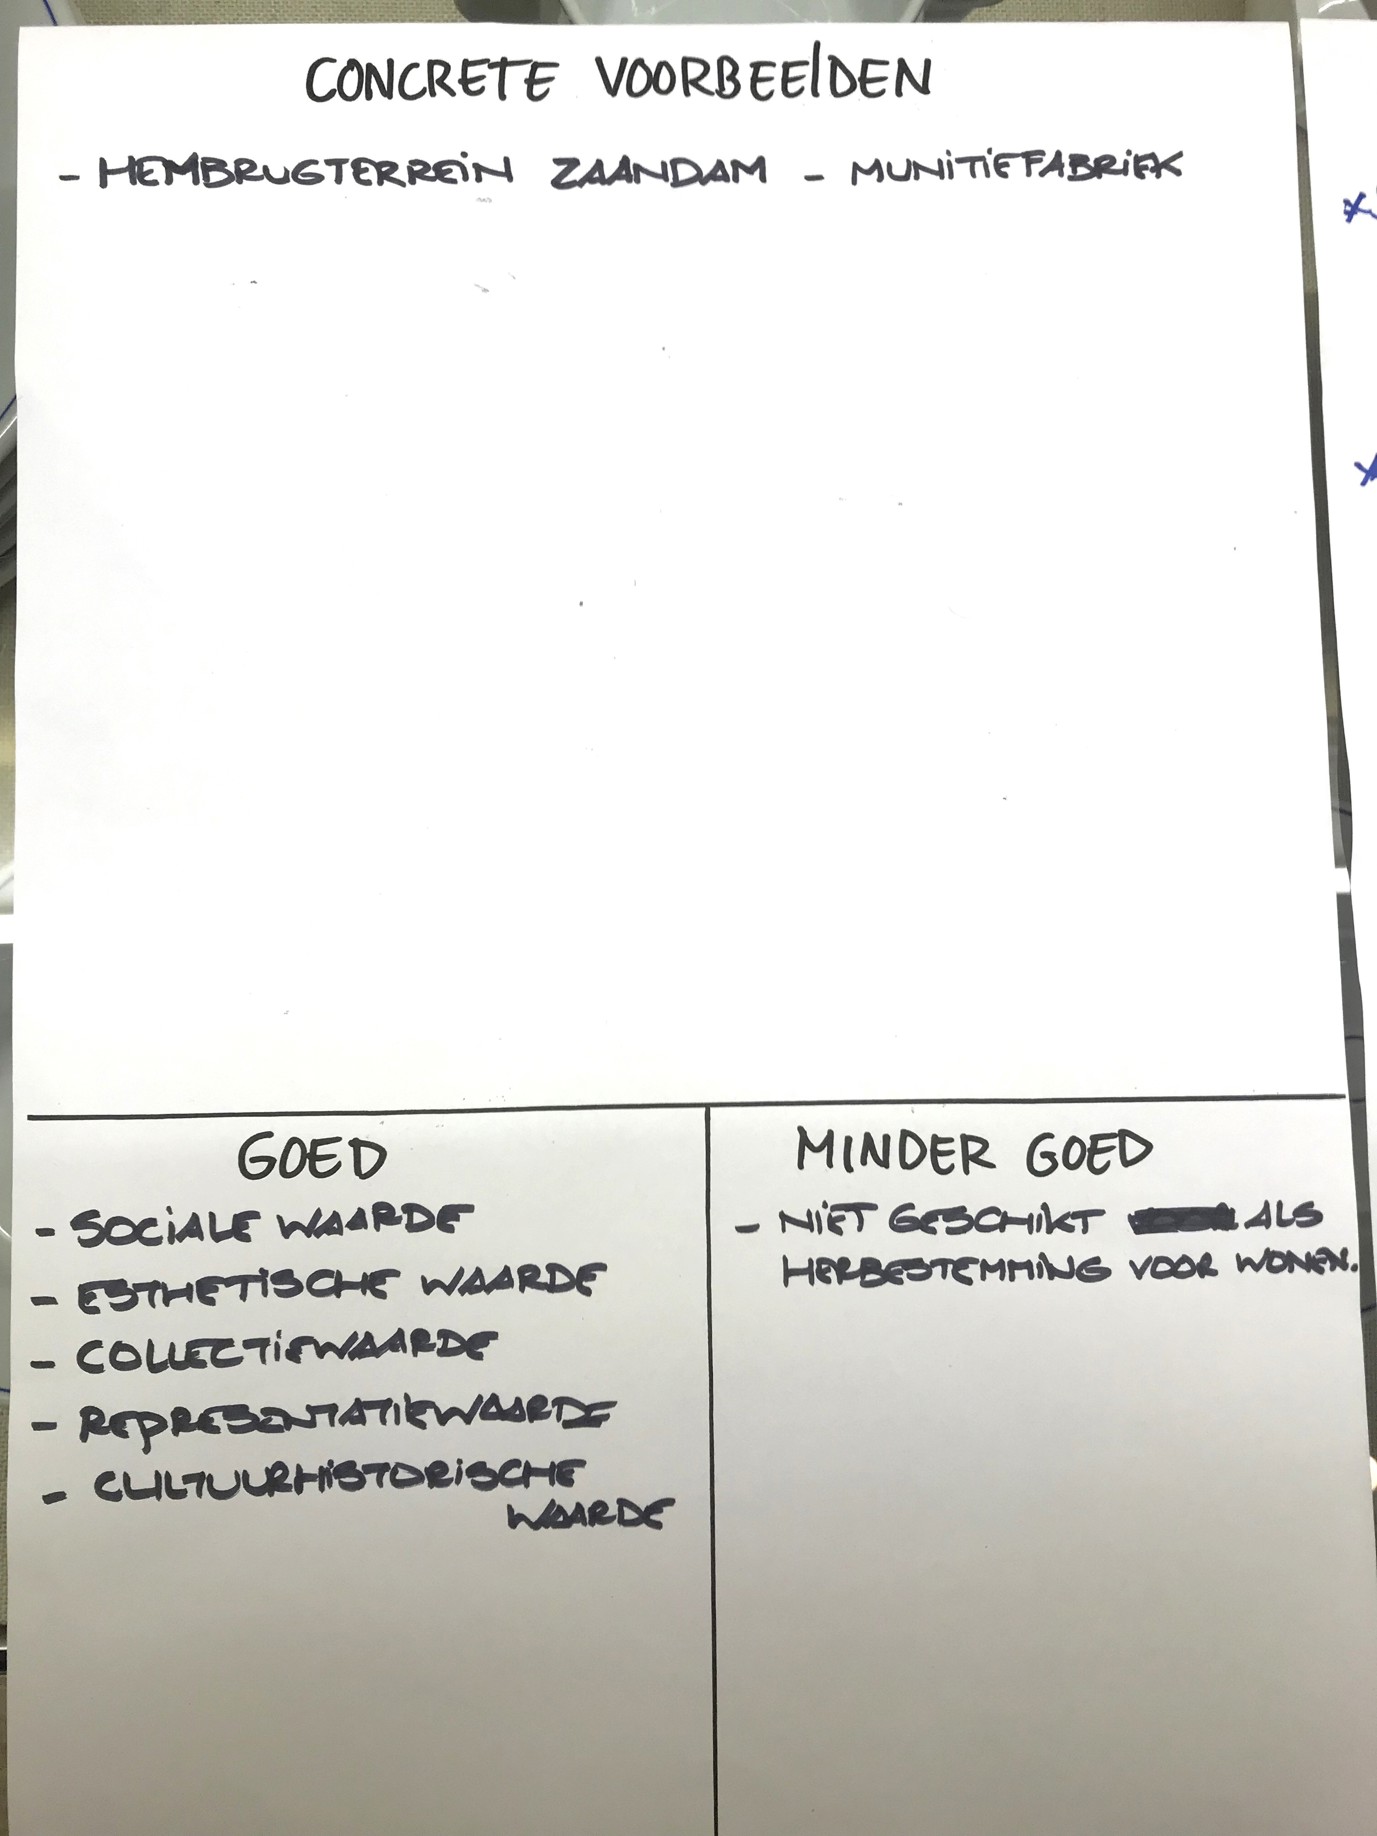 CONCRETE VOORBEELDEN
- HEMBRUGTERREIN ZAANDAM - MUNITIEFABRIEK
GOED
- SOCIALE WAARDE
- ESTHETISCHE WAARDE
- COLLECTIEWAARDE
- REPRESENTATIEWAARDE
- CULTUURHISTORISCHE
WAARDE
MINDER GOED
- NIET GESCHIKT ALS
HERBESTEMMING VOOR WONEN.